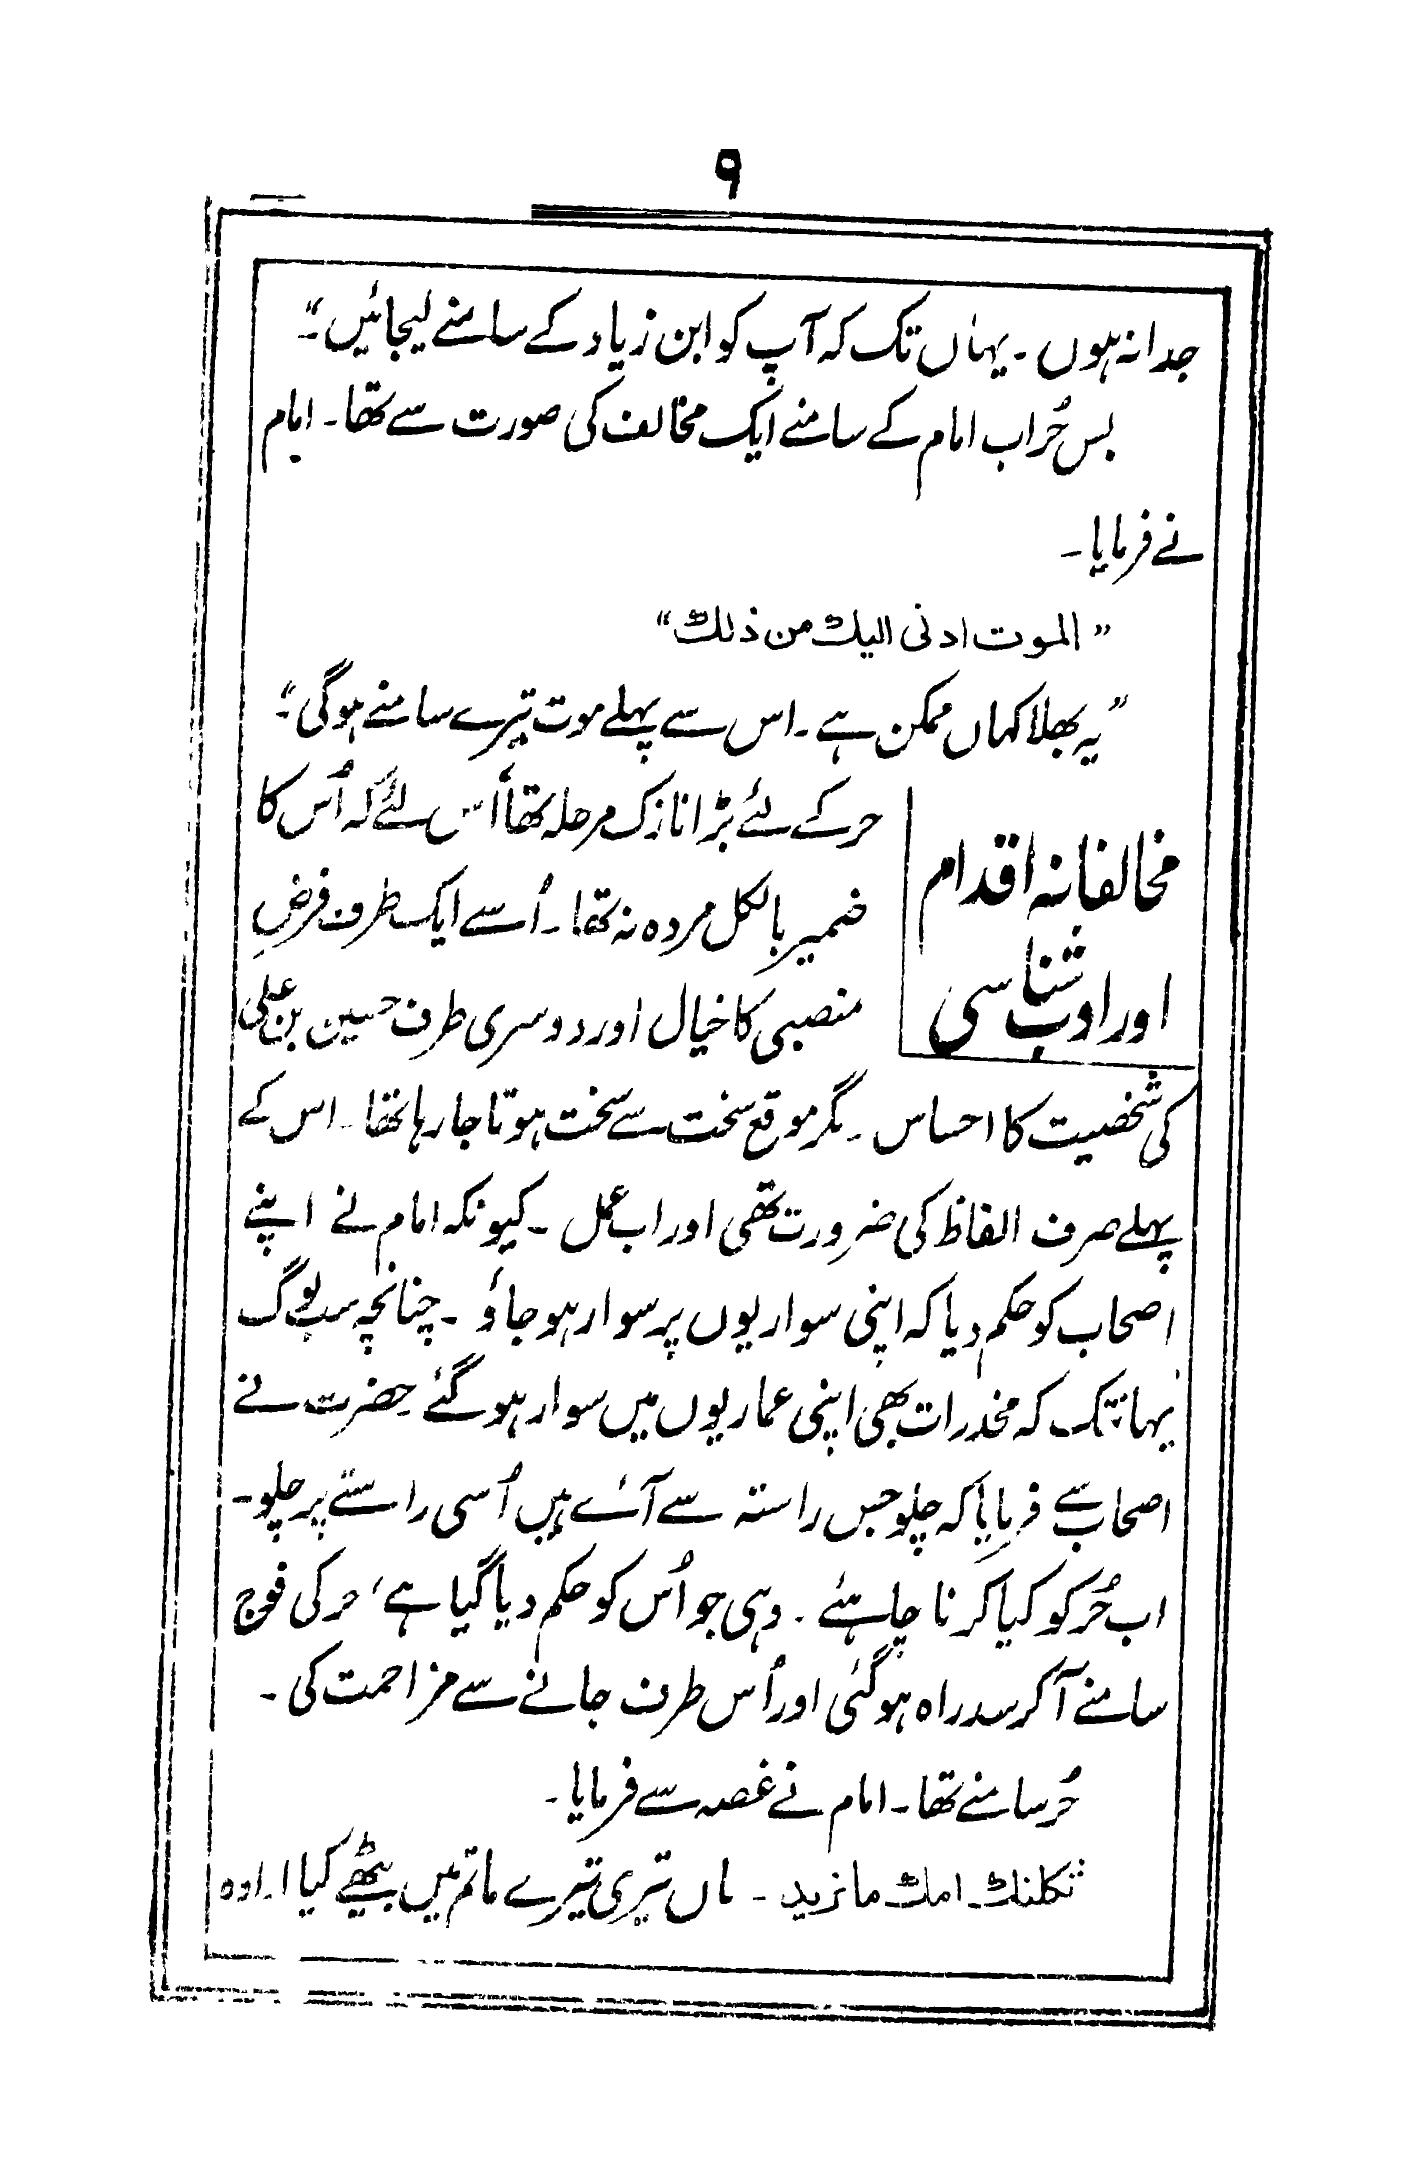 ۹
جدا نہ ہوں ۔ یہاں تک کہ آپ کو ابن زیاد کے سامنے لیجائیں"۔
بس حُر اب امام کے سامنے ایک مخالف کی صورت سے تھا۔ امام
نے فرمایا ۔
" الموت ادنی الیک من ذلک "
" یہ بھلا کہاں ممکن ہے ۔ اس سے پہلے موت تیرے سامنے ہوگی"۔
مخالفانہ اقدام
اور ادب شناسی
حر کے لئے بڑا نازک مرحلہ تھا اُس لئے کہ اُس کا
ضمیر بالکل مردہ نہ تھا ۔ اُسے ایک طرف فرضِ
منصبی کا خیال اور دوسری طرف حسین بن علی
کی شخصیت کا احساس ۔ مگر موقع سخت سے سخت ہوتا جا رہا تھا ۔ اس کے
پہلے صرف الفاظ کی ضرورت تھی اور اب عمل ۔ کیونکہ امام نے اپنے
اصحاب کو حکم دیا کہ اپنی سواریوں پر سوار ہو جاؤ ۔ چنانچہ سب لوگ
یہانتک کہ مخدرات بھی اپنی عماریوں میں سوار ہو گئے حضرت نے
اصحاب سے فرمایا کہ چلو جس راستہ سے آئے ہیں اُسی راستے پر چلو ۔
اب حُر کو کیا کرنا چاہئے ۔ وہی جو اُس کو حکم دیا گیا ہے ، حر کی فوج
سامنے آکر سدراہ ہوگئی اور اُس طرف جانے سے مزاحمت کی ۔
حُر سامنے تھا ۔ امام نے غصہ سے فرمایا ۔
ثکلتک امک ما نرید ۔ ماں تیری تیرے ماتم میں بیٹھے کیا ارادہ